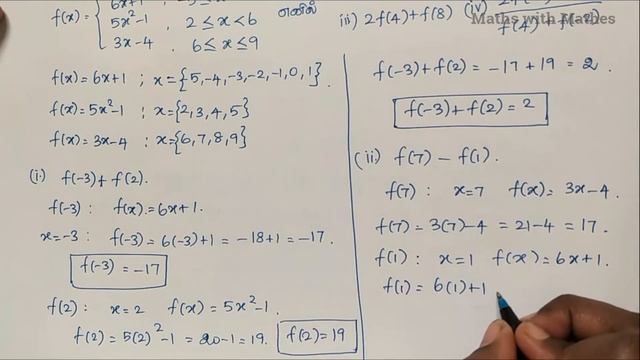 f(x) = { 6x+1 ,
5x²-1 , 2 ≤ x < 6 எனில்
3x-4 , 6 ≤ x ≤ 9
f(x) = 6x+1 ; x={5,-4,-3,-2,-1,0,1}.
f(x) = 5x²-1 ; x={2,3,4,5}
f(x) = 3x-4 ; x={6,7,8,9}
(i) f(-3)+f(2).
f(-3) : f(x) = 6x+1.
x=-3 : f(-3) = 6(-3)+1 = -18+1 = -17.
f(-3) = -17
f(2) : x=2 f(x) = 5x²-1.
f(2) = 5(2)²-1 = 20-1 = 19. f(2) = 19
Maths with Mathes
iii) 2f(4)+f(8) (iv)
f(-3)+f(2) = -17+19 = 2.
f(-3)+f(2) = 2
(ii) f(7) - f(1).
f(7) : x=7 f(x) = 3x-4.
f(7) = 3(7)-4 = 21-4 = 17.
f(1) : x=1 f(x) = 6x+1.
f(1) = 6(1)+1